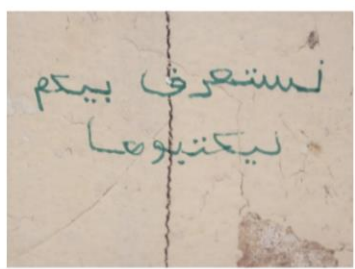 نستعرف بيكم
ليكتبوها